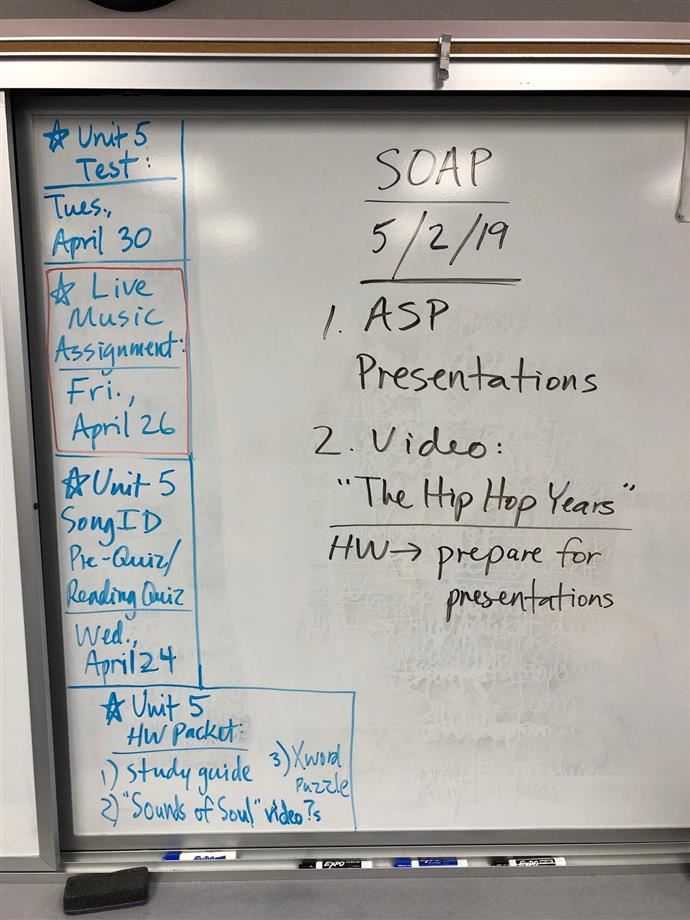 ☆ Unit 5
Test:
Tues.,
April 30
☆ Live
Music
Assignment:
Fri.,
April 26
☆ Unit 5
Song ID
Pre-Quiz/
Reading Quiz
Wed.,
April 24
☆ Unit 5
HW Packet:
1) Study guide
2) "Sounds of Soul" video ?s
3) Xword
Puzzle
SOAP
5/2/19
1. ASP
Presentations
2. Video:
"The Hip Hop Years"
HW → prepare for
presentations
EXPO
EXPO
EXPO
EXPO